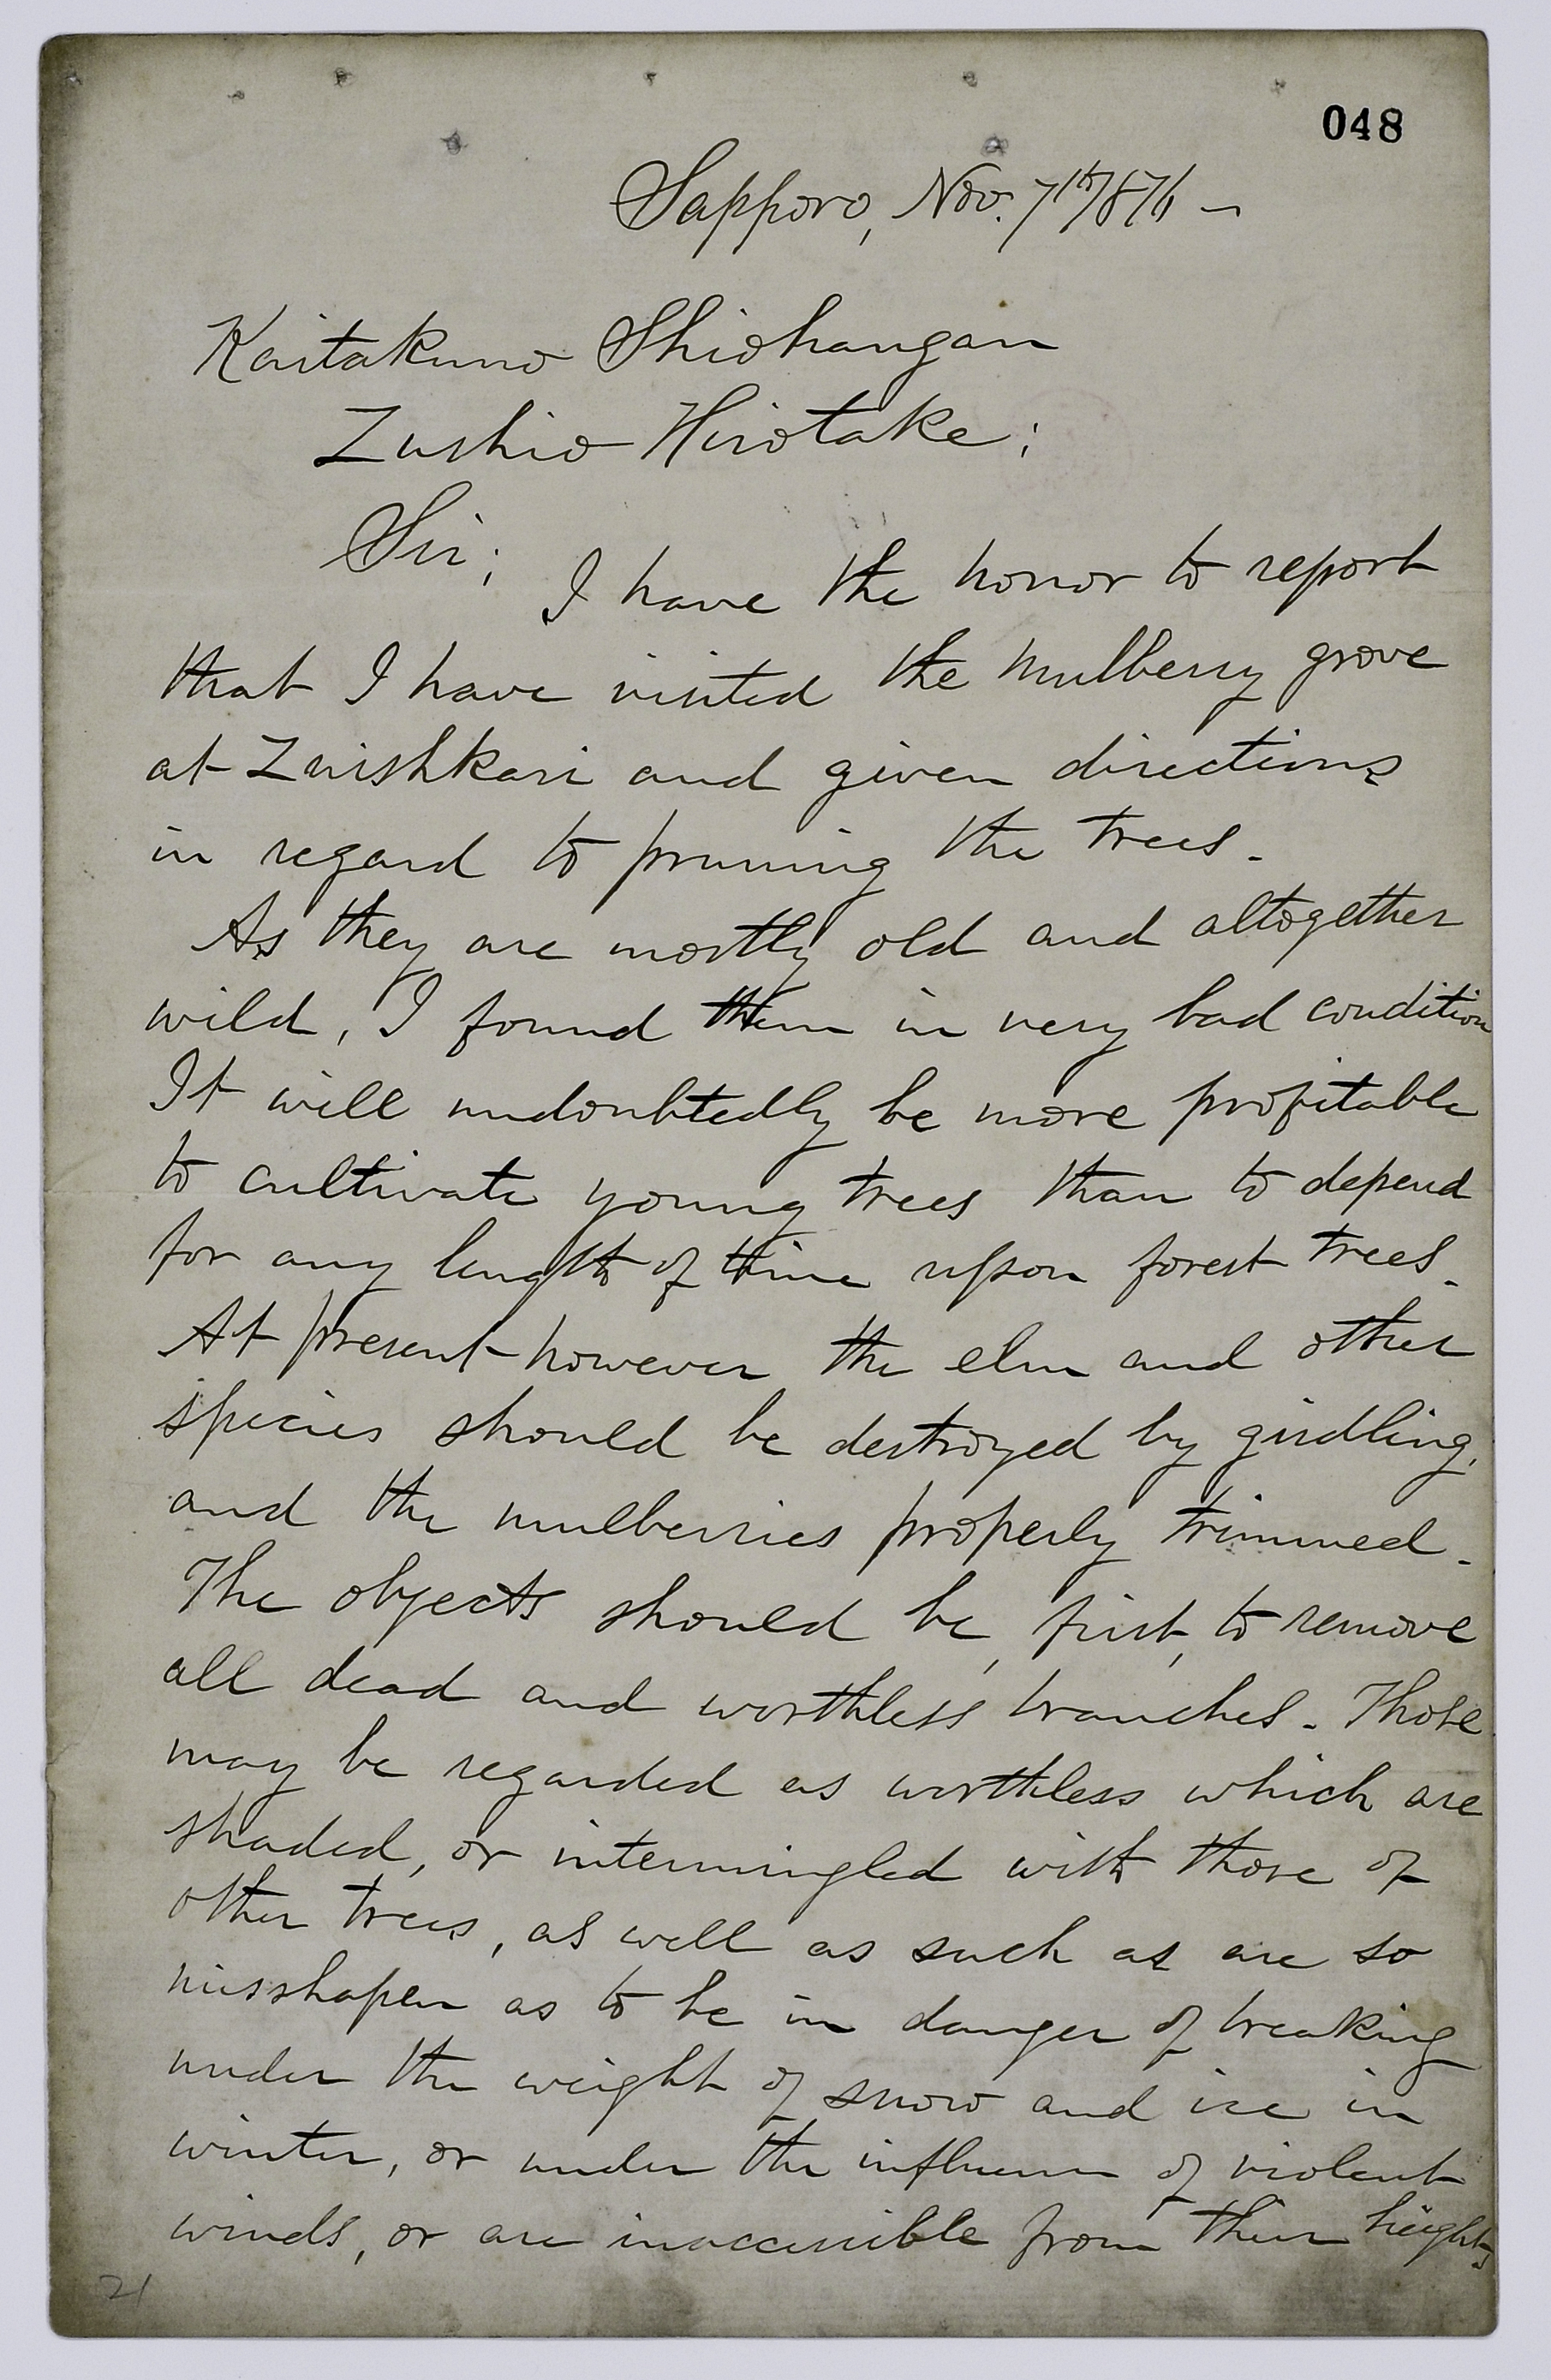 048
Sapporo, Nov. 7th 1876 —
Kaitakuno Shiohangan
Zushio Hirotake;
Sir;
I have the honor to report
that I have visited the mulberry grove
at Zuishkari and given directions
in regard to pruning the trees.
As they are mostly old and altogether
wild, I found them in very bad condition
It will undoubtedly be more profitable
to cultivate young trees than to depend
for any length of time upon forest trees.
At present however the elm and other
species should be destroyed by girdling,
and the mulberries properly trimmed.
The objects should be, first, to remove
all dead and worthless branches. Those
may be regarded as worthless which are
shaded, or intermingled with those of
other trees, as well as such as are so
misshapen as to be in danger of breaking
under the weight of snow and ice in
winter, or under the influence of violent
winds, or are inaccessible from their height.
21